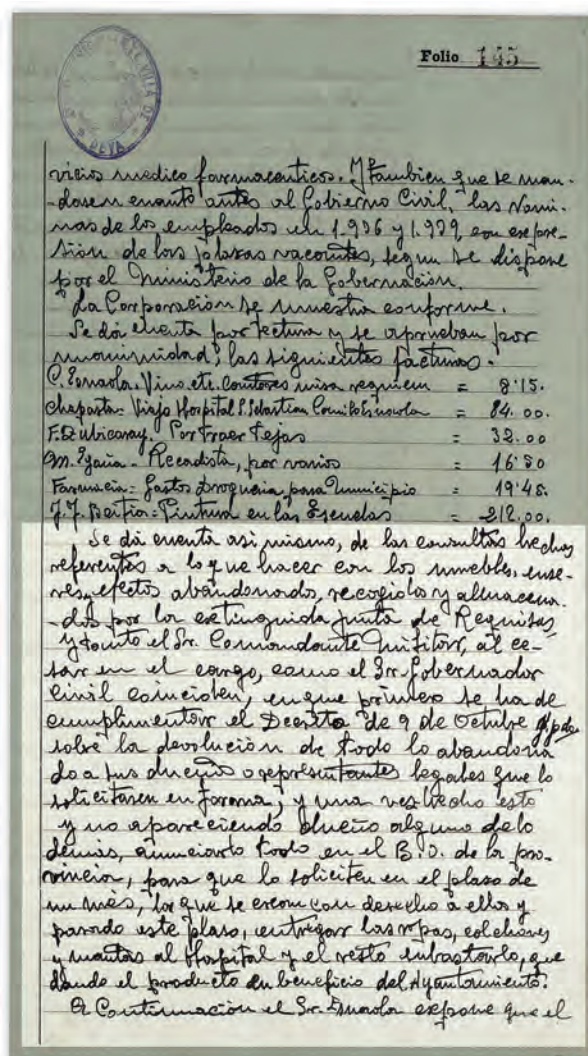 Folio 145
VILLA DE
DEVA
vicios medico farmaceuticos. Y tambien que se man-
-dasen cuanto antes al Gobierno Civil, las Nomi-
nas de los empleados en 1.936 y 1.939, con expre-
sión de las plazas vacantes, segun se dispone
por el Ministerio de la Gobernación.
La Corporación se muestra conforme.
Se dá cuenta por lectura y se aprueban por
unanimidad, las siguientes facturas.
C. Esnaola. Vino etc. Cantores misa requiem = 8'15.
Chaparta = Viaje Hospital S. Sebastian Camilo Esnaola = 84.00.
F. Zubicaray. Por traer Tejas = 32.00
M. Egaña - Recadista, por varios = 16'50
Farmacia = Gastos Drogueria para Municipio = 19'45.
J.J. = Pintura en las Escuelas = 212.00.
Se dá cuenta asi mismo, de las consultas hechas
referentes a lo que hacer con los muebles, ense-
res, efectos abandonados, recogidos y almacena-
-dos por la extinguida junta de Requisas,
y tanto el Sr. Comandante Militar, al ce-
sar en el cargo, como el Sr. Gobernador
Civil coinciden, en que primero se ha de
cumplimentar el Decreto de 9 de Octubre
sobre la devolución de todo lo abandona
do a sus dueños o representantes legales que lo
solicitasen en forma, y una vez hecho esto
y no apareciendo dueño alguno de lo
demás, anunciarlo todo en el B.O. de la pro-
vincia, para que lo soliciten en el plazo de
un mes, los que se crean con derecho a ellos y
pasado este plazo, entregar las ropas, colchones
y mantas al Hospital y el resto subastarlo, que
dando el producto en beneficio del Ayuntamiento.
A Continuación el Sr. Esnaola expone que el